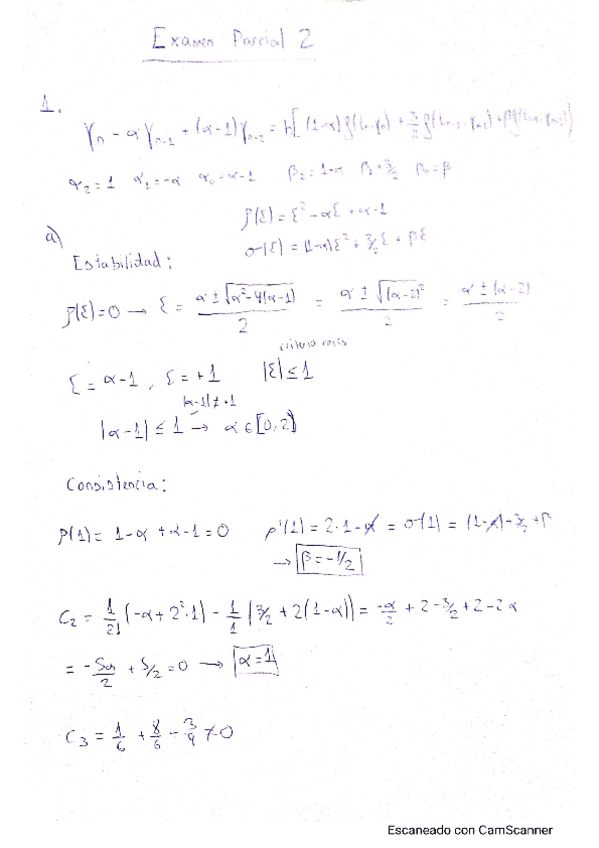 Examen Parcial 2
1.
Yn - αYn-1 + (α-1)Yn-2 = h[(1-α)f(tn, yn) + 3/2 f(tn-1, yn-1) + βf(
α2 = 1 α1 = -α α0 = α-1 β2 = 1-α β1 = 3/2 β0 = β
ρ(ξ) = ξ² - αξ + α-1
a)
σ(ξ) = (1-α)ξ² + 3/2 ξ + βξ
Estabilidad:
ρ(ξ)=0 → ξ = (α ± √(α²-4(α-1)))/2 = (α ± √(α-2)²)/2 = (α ± (α-2))/2
criterio raíces
ξ = α-1, ξ = +1 |ξ| ≤ 1
|α-1| ≠ +1
|α-1| ≤ 1 → α ∈ [0, 2)
Consistencia:
ρ(1) = 1-α + α-1 = 0 ρ'(1) = 2·1-α = σ(1) = (1-α)-3/2 + β
→ β = -1/2
C2 = 1/2! (-α + 2²·1) - 1/1 (3/2 + 2(1-α)) = -α/2 + 2 - 3/2 + 2 - 2α
= -5α/2 + 5/2 = 0 → α = 1
C3 = 1/6 + 8/6 - 3/4 ≠ 0
Escaneado con CamScanner